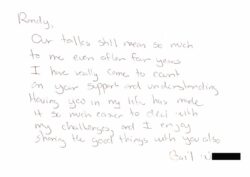 Randy,
Our talks still mean so much
to me even after four years
I have really come to count
on your support and understanding
Having you in my life has made
it so much easier to deal with
my challenges, and I enjoy
sharing the good things with you also
Gail